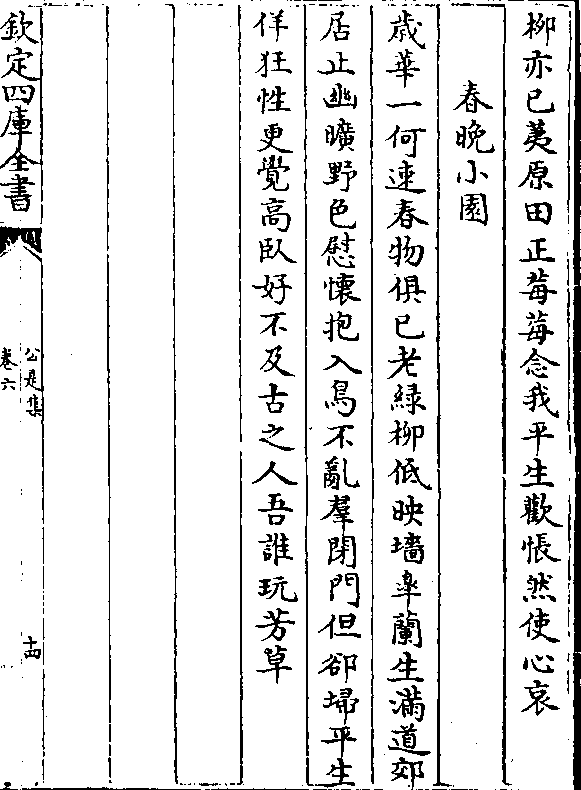 柳亦已荑原田正莓莓念我平生歡悵然使心哀
春晚小園
歲華一何速春物俱已老緑柳低映墻皋蘭生滿道郊
居止幽曠野色慰懷抱入鳥不亂羣閉門但卻埽平生
佯狂性更覺高臥好不及古之人吾誰玩芳草
欽定四庫全書
公是集
卷六
十四